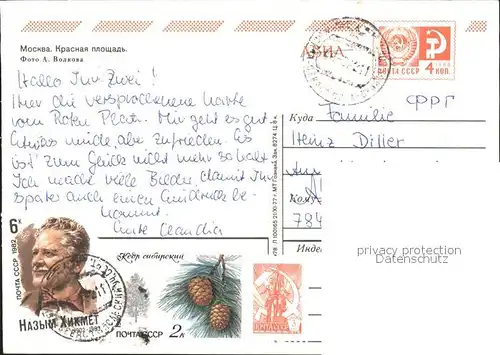 Москва. Красная площадь.
Фото А. Волкова
АВИА
ПОЧТА СССР 4 КОП
Hallo Ihr Zwei!
Hier die versprochene Karte
vom Roten Platz. Mir geht es gut.
Etwas müde, aber zufrieden. Es
ist zum Glück nicht mehr so kalt.
Ich mache viele Bilder, damit Ihr
später auch einen Eindruck be-
kommt.
Eure Claudia
ФРГ
Куда Familie
Heinz Ditler
Кому
784
Индекс
privacy protection
6к
ПОЧТА СССР 1982
НАЗЫМ ХИКМЕТ
1902
Кедр сибирский
ПОЧТА СССР 2к
ПОЧТА СССР